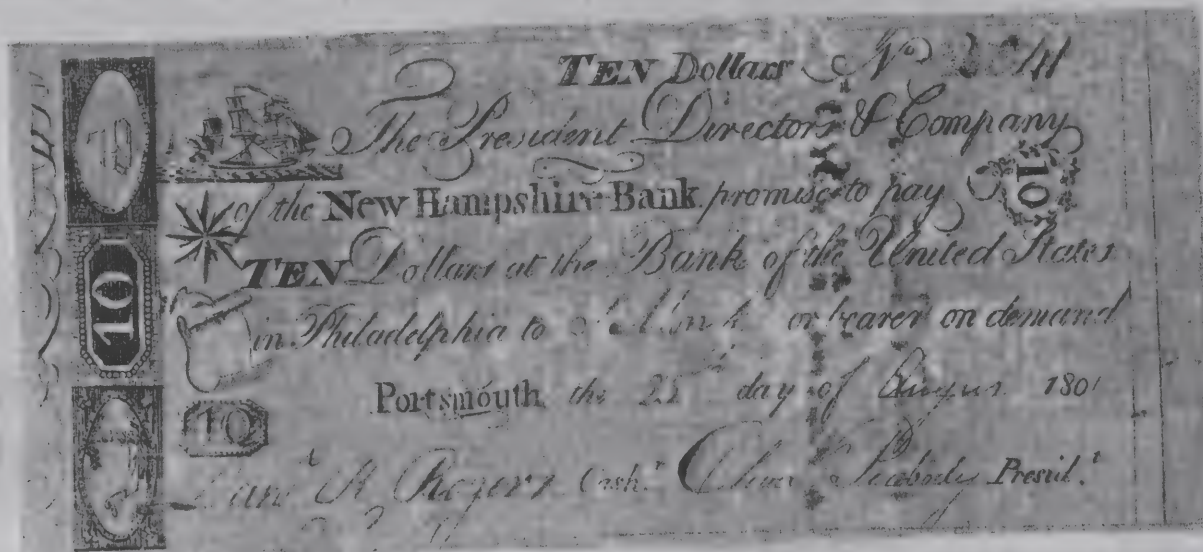 TEN Dollars No
The President Directors & Company
10
of the New Hampshire Bank promise to pay
10
TEN Dollars at the Bank of the United States
10
in Philadelphia to or bearer on demand
Portsmouth the 25th day of August 1801
10
Rogers Cashr. Oliver Peabody Presidt.